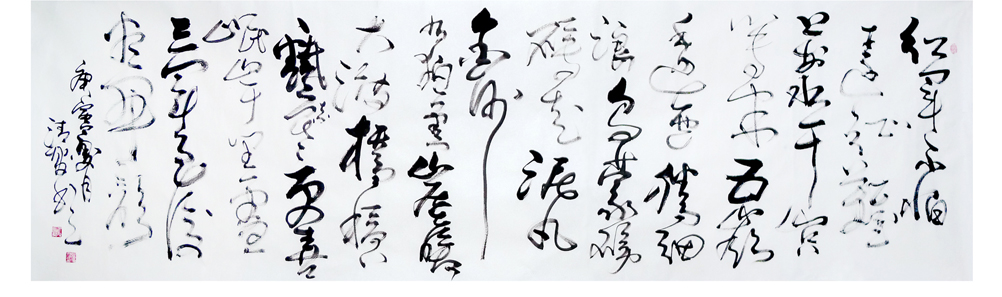 红军不怕
远征难
万水千山只
等闲五岭
逶迤腾细
浪乌蒙磅
礴走泥丸
金沙
水拍云崖暖
大渡桥横
铁索寒更喜
岷山千里雪
三军过后
尽开颜
庚寅夏月